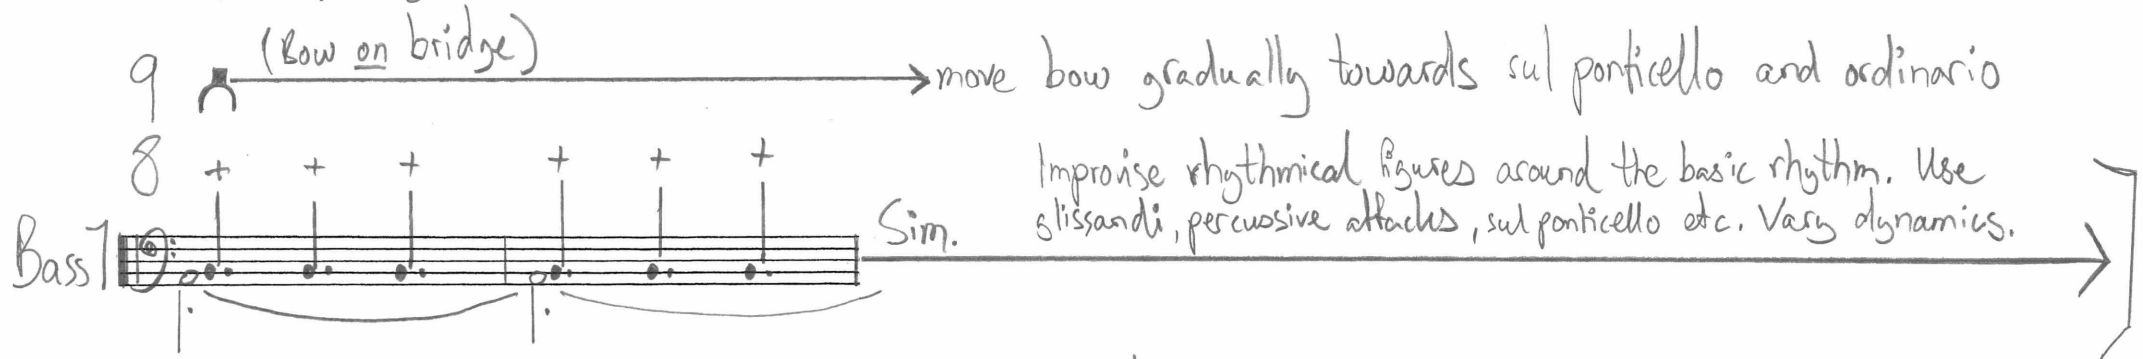 9 (Bow on bridge) move bow gradually towards sul ponticello and ordinario
8 + + + + + + Improvise rhythmical figures around the basic rhythm. Use
Bass 1 Sim. glissandi, percussive attacks, sul ponticello etc. Vary dynamics.